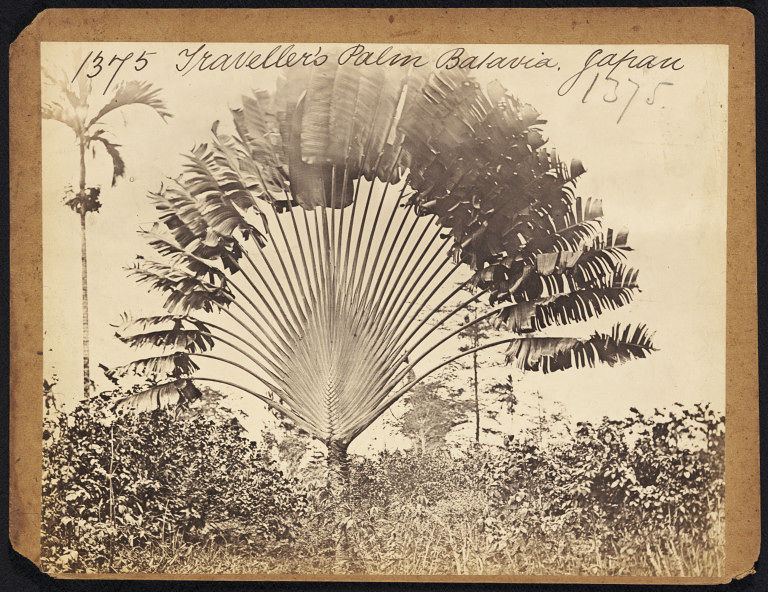 1375 Traveller's Palm Batavia. Japan
1375.